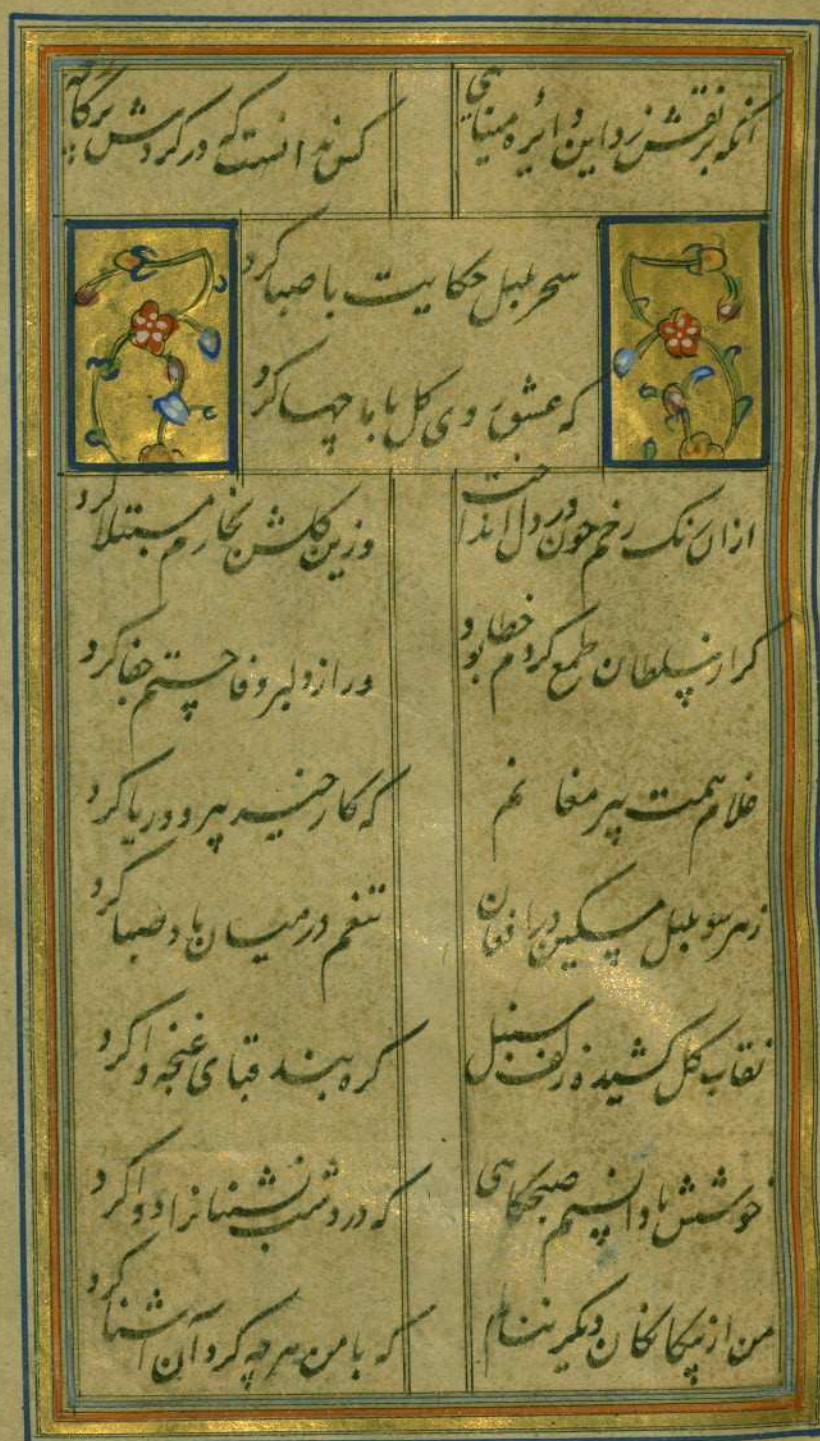 آنکه پر نقش زد این دایره مینایی
کس ندانست که در گردش پرگار چه
سحر بلبل حکایت با صبا کرد
که عشق روی گل با ما چها کرد
ازان رنگ رخم خون در دل انداخت
وزین گلشن بخارم مبتلا کرد
گر از سلطان طمع کردم خطا بود
ور از دلبر وفا جستم جفا کرد
غلام همت پیر مغانم
که کار خیر بی رو و ریا کرد
زهر سو بلبل مسکین در افغان
تنعم در میان باد صبا کرد
نقاب گل کشید و زلف سنبل
گره بند قبای غنچه وا کرد
خوشش باد آن نسیم صبحگاهی
که درد شب نشینانرا دوا کرد
من از بیگانگان دیگر ننالم
که با من هرچه کرد آن آشنا کرد